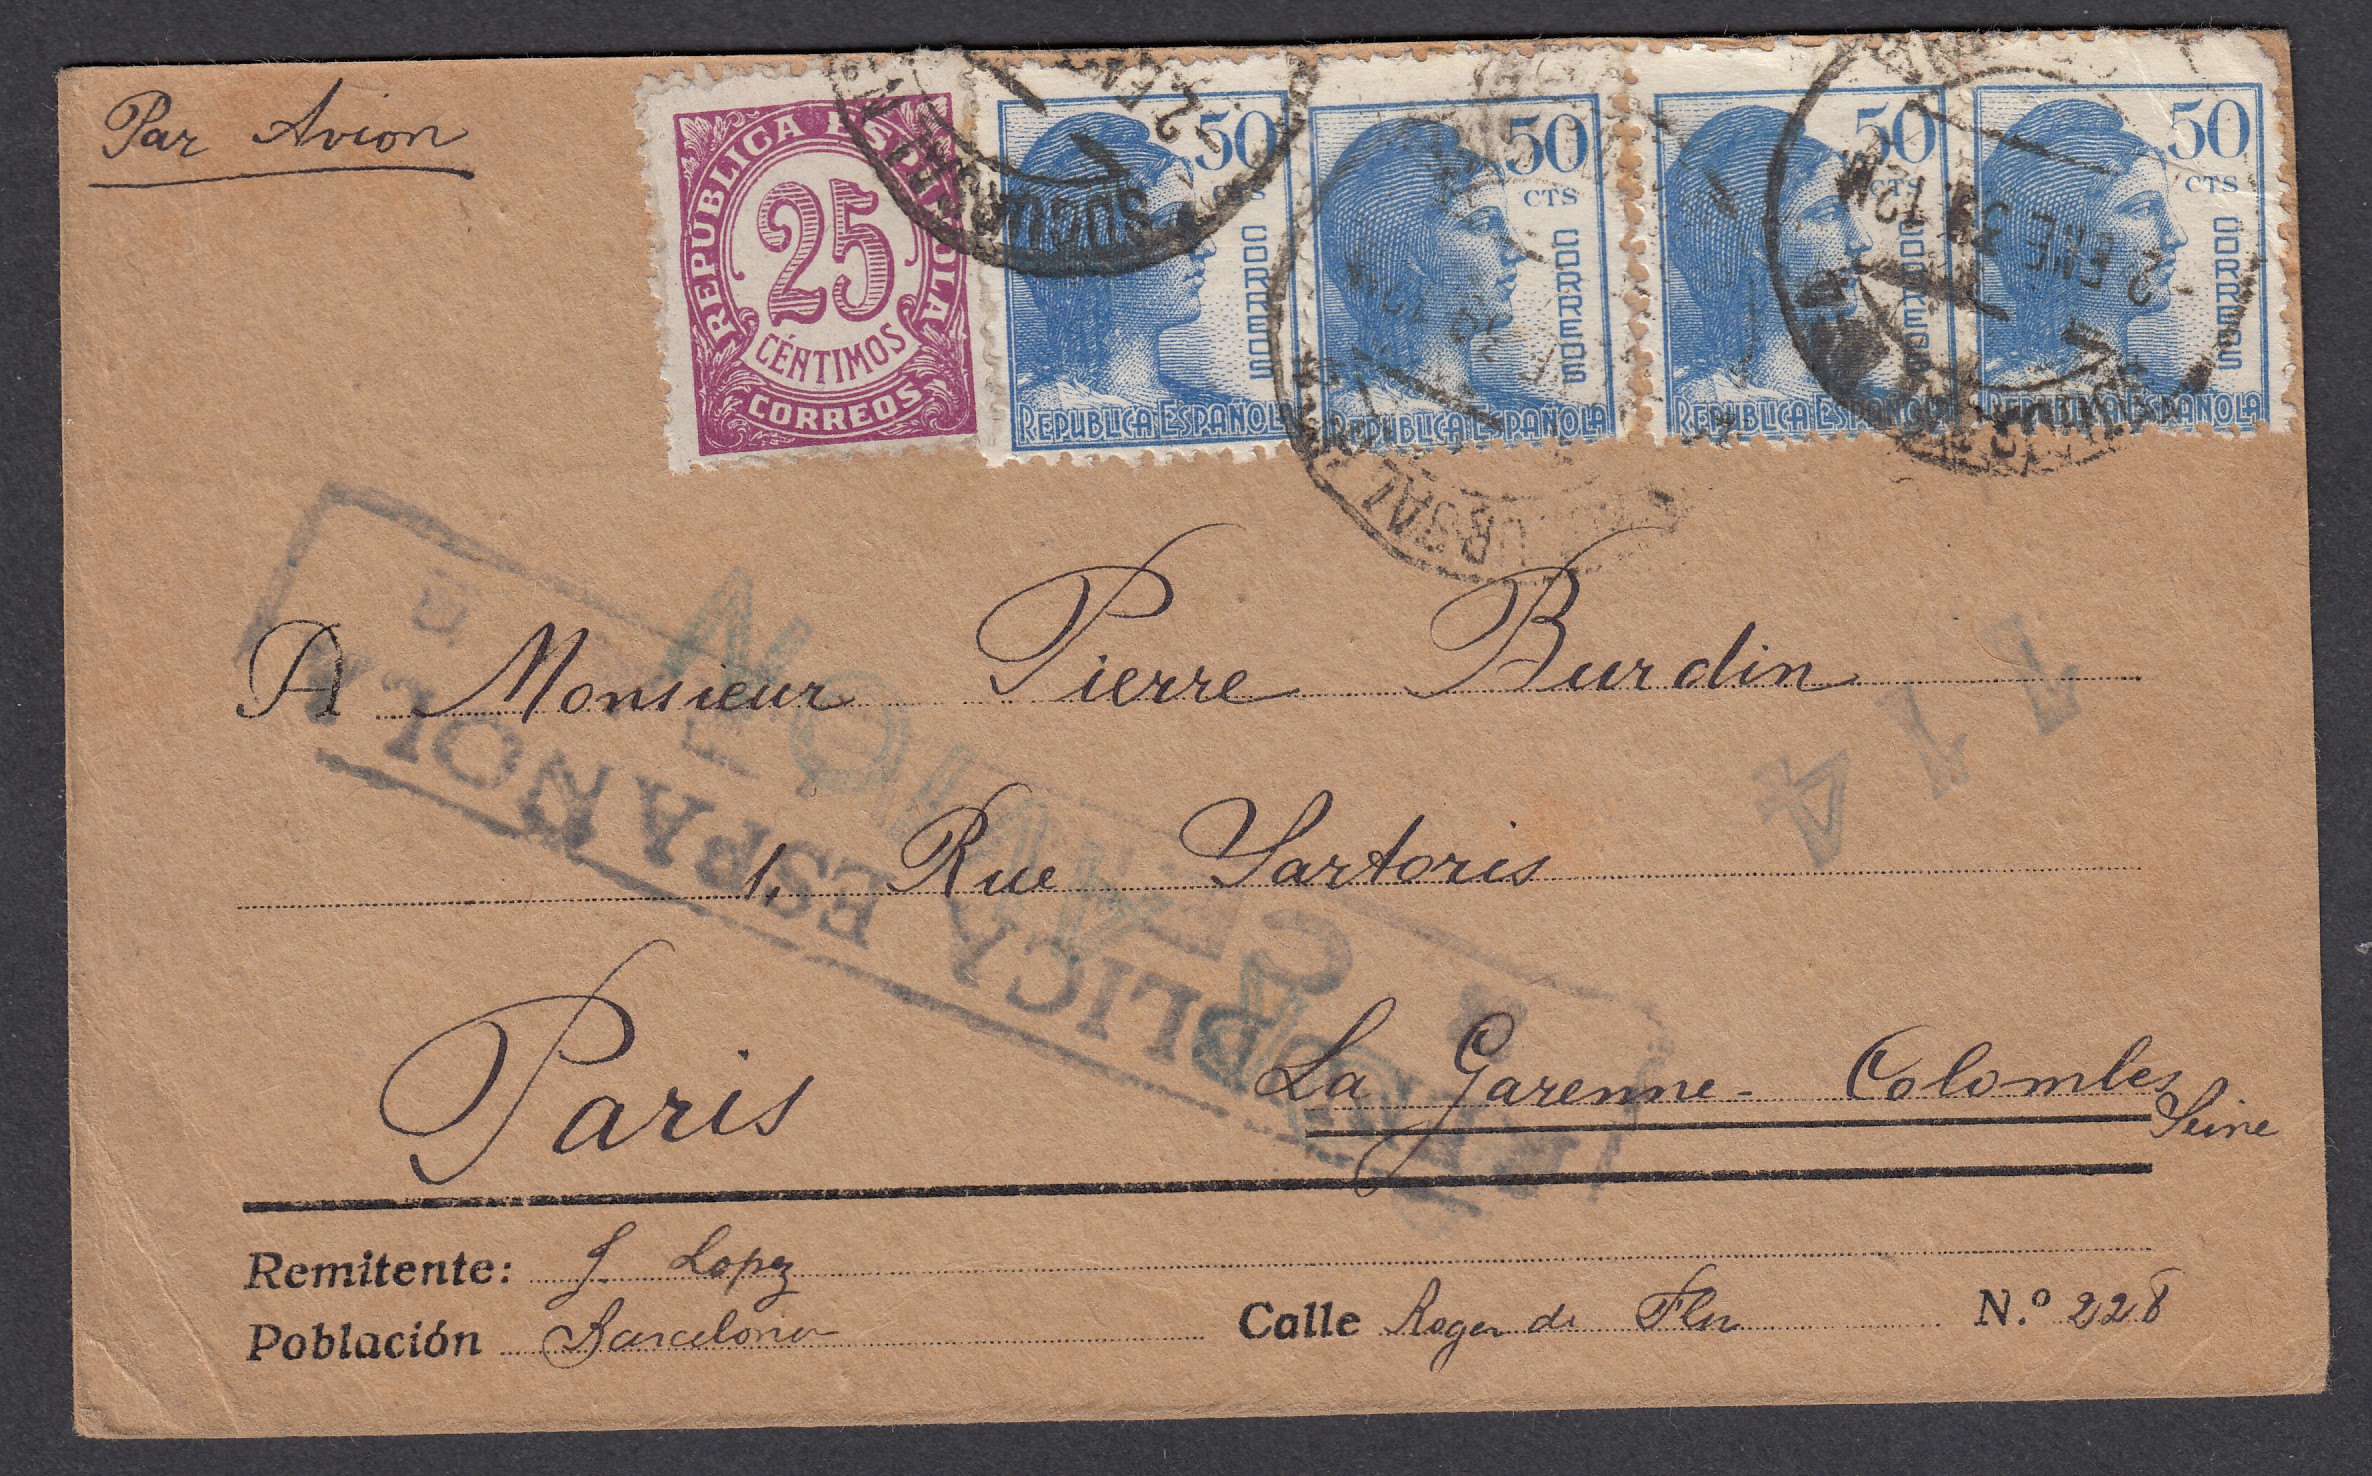 Par Avion
REPUBLICA ESPAÑOLA
25
CÉNTIMOS
CORREOS
50
CORREOS
REPUBLICA ESPAÑOLA
50
CTS
CORREOS
REPUBLICA ESPAÑOLA
50
CTS
CORREOS
REPUBLICA ESPAÑOLA
50
CTS
CORREOS
REPUBLICA ESPAÑOLA
2 ENE 39 12M
A Monsieur Pierre Burdin
114
1, Rue Sartoris
Paris La Garenne-Colombes
Seine
REPUBLICA ESPAÑOLA
AVION
Remitente: J. Lopez
Población Barcelona Calle Roger de Flor N.º 228